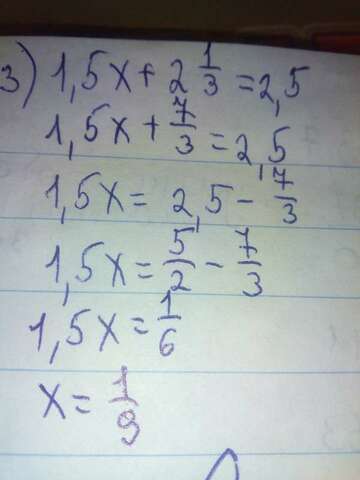 3) 1,5x + 2 1/3 = 2,5
1,5x + 7/3 = 2,5
1,5x = 2,5 - 7/3
1,5x = 5/2 - 7/3
1,5x = 1/6
x = 1/9